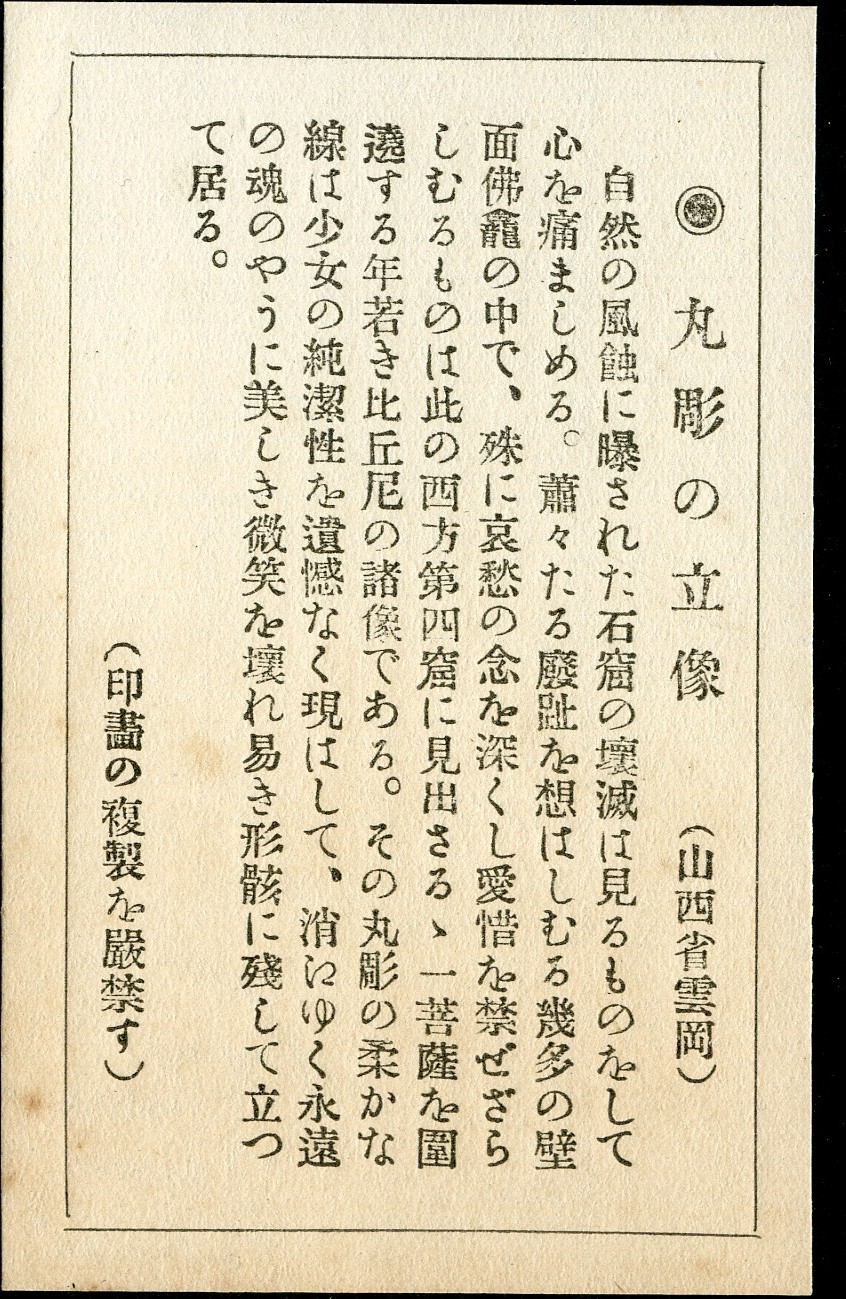 ◉ 丸彫の立像 （山西省雲岡）
自然の風蝕に曝された石窟の壞滅は見るものをして
心を痛ましめる。蕭々たる廢趾を想はしむる幾多の壁
面佛龕の中で、殊に哀愁の念を深くし愛惜を禁ぜざら
しむるものは此の西方第四窟に見出さるゝ一菩薩を圍
遶する年若き比丘尼の諸像である。その丸彫の柔かな
線は少女の純潔性を遺憾なく現はして、消江ゆく永遠
の魂のやうに美しき微笑を壞れ易き形骸に殘して立つ
て居る。
（印畵の複製を嚴禁す）